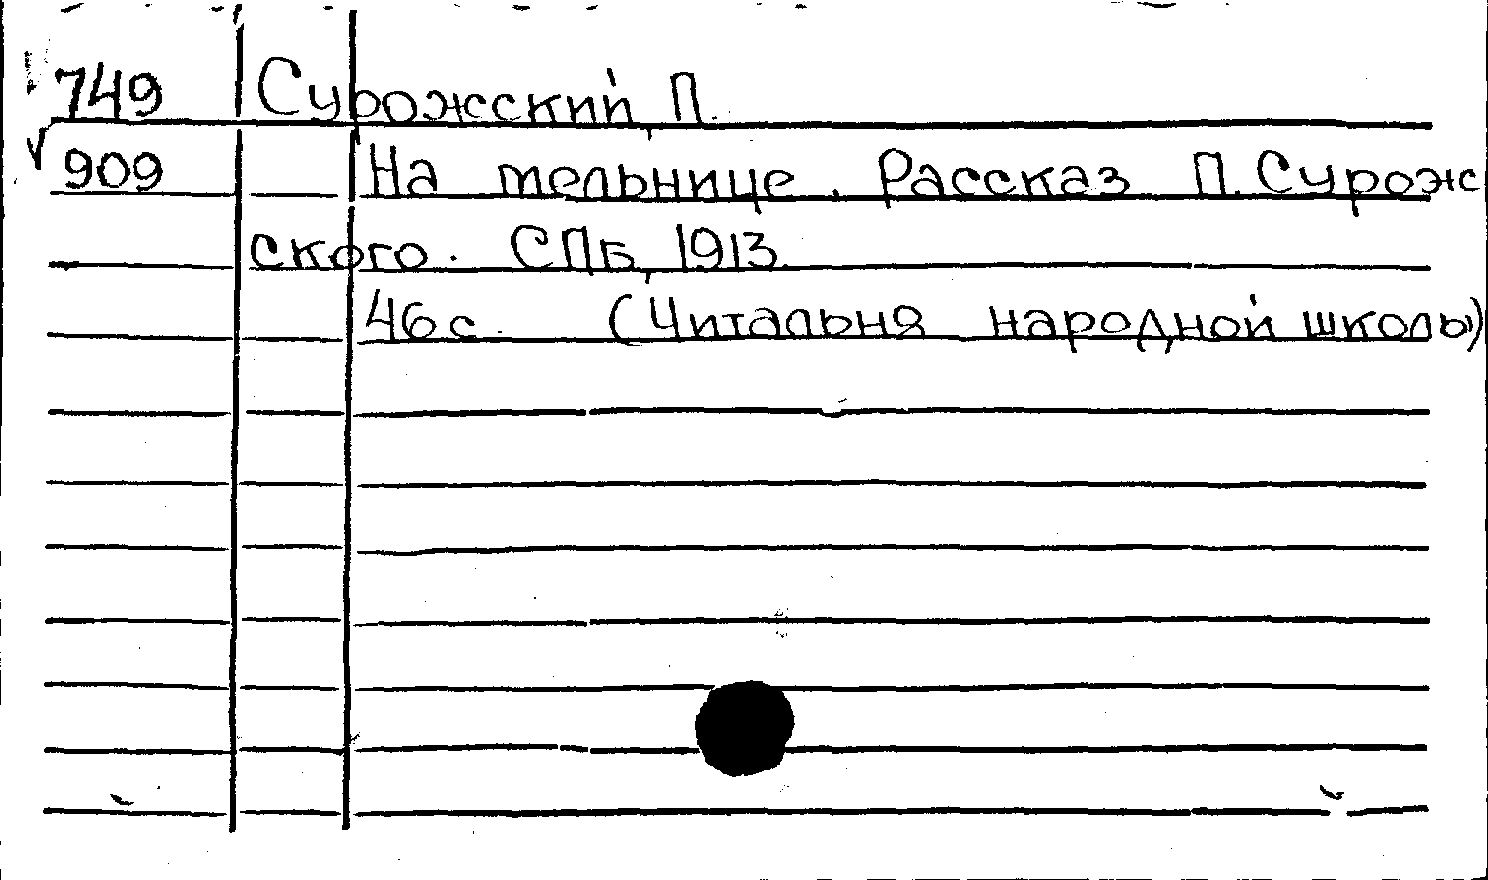 749 Сурожский, П.
909 На мельнице. Рассказ П. Сурож
ского. СПБ, 1913
46 с. (Читальня народной школы)